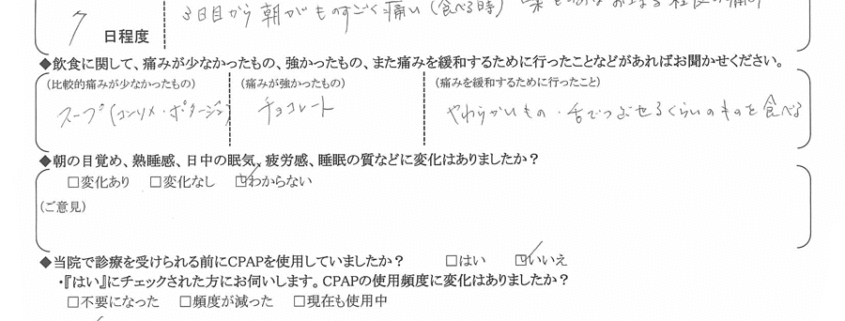 7 日程度
3日目から 朝がものすごく痛い(食べる時)
◆飲食に関して、痛みが少なかったもの、強かったもの、また痛みを緩和するために行ったことなどがあればお聞かせください。
(比較的痛みが少なかったもの) (痛みが強かったもの) (痛みを緩和するために行ったこと)
スープ(コンソメ・ポタージュ) チョコレート やわらかいもの・舌でつぶせるくらいのものを食べる
◆朝の目覚め、熟睡感、日中の眠気、疲労感、睡眠の質などに変化はありましたか?
□変化あり □変化なし ☑わからない
(ご意見)
◆当院で診療を受けられる前にCPAPを使用していましたか? □はい ☑いいえ
・『はい』にチェックされた方にお伺いします。CPAPの使用頻度に変化はありましたか?
□不要になった □頻度が減った □現在も使用中